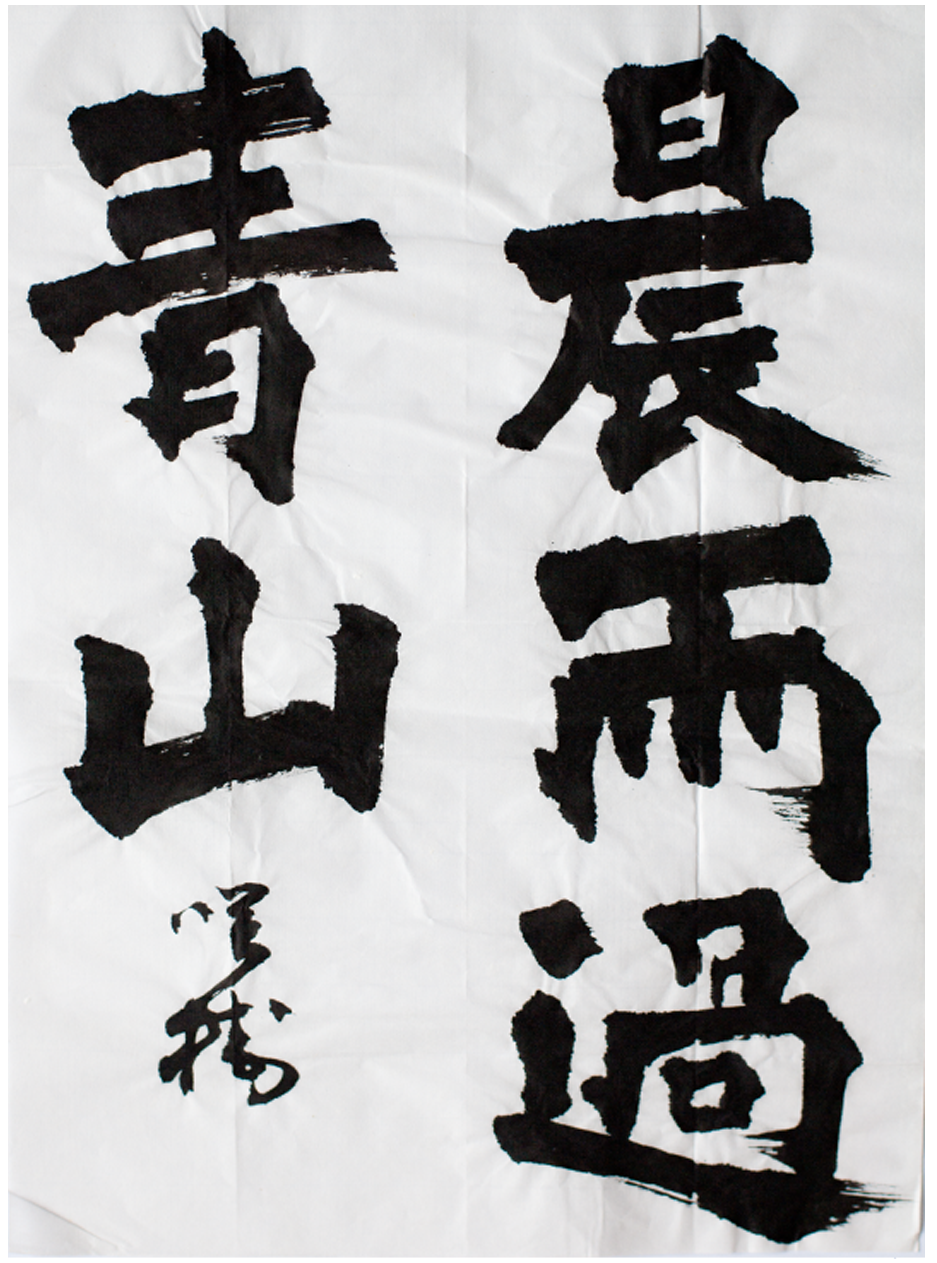 晨雨過
青山